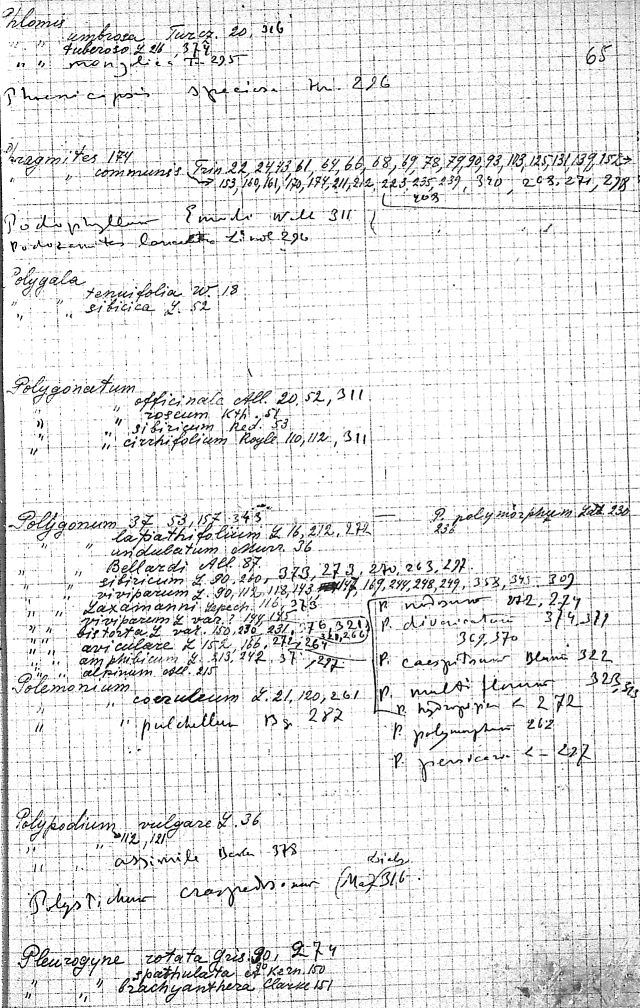 Phlomis
" " umbrosa Turcz. 20, 316
" " tuberosa L. 216, 374
" " mongolica T. 295
65
speciosa 296
Phragmites 174
" " communis Trin 22, 24, 43, 61, 64, 66, 68, 69, 78, 79, 90, 93, 103, 125, 131, 139, 152
153, 160, 161, 170, 174, 211, 212, 223-235, 239, 340, 268, 271, 298
Podophyllum Emodi Wall 311
Podozamites lanceolatus 296
Polygala
" " tenuifolia W. 18
" " sibirica L. 52
Polygonatum
" " officinale All. 20, 52, 311
" " roseum Kth. 51
" " sibiricum Red. 53
" " cirrhifolium Royle 110, 112, 311
Polygonum 37, 53, 157, 343
" " lapathifolium L 16, 212, 272
" " undulatum Murr. 36
" " Bellardi All. 87
" " sibiricum L. 90, 260, 373, 273, 270, 263, 297
" " viviparum L. 90, 112, 118, 143, 147, 169, 244, 248, 249, 358, 343, 309
" " Laxmanni Lepech. 116, 373
" " viviparum L var? 144, 145
" " bistorta L var. 150, 230, 231, 76, 321
" " aviculare L 152, 166, 271, 264
" " amphibicum L. 213, 242, 37, 297
" " alpinum All. 215
P. polymorphum 230
236
P. nodosum 272, 274
P. divaricatum 374, 371
369, 370
P. caespitosum Blume 322
P. multiflorum 323
P. hydropiper L 272
P. polymorphum 262
P. persicaria L - 297
Polemonium
" " coeruleum L. 21, 120, 261
" " pulchellum Bg 287
Polypodium vulgare L. 36
" " 112, 121
" " assimile 378
Polystichum craspedosorum (Max) Diels 316
Pleurogyne rotata Gris. 90, 274
" " spathulata A Kern. 150
" " brachyanthera Clarke 151